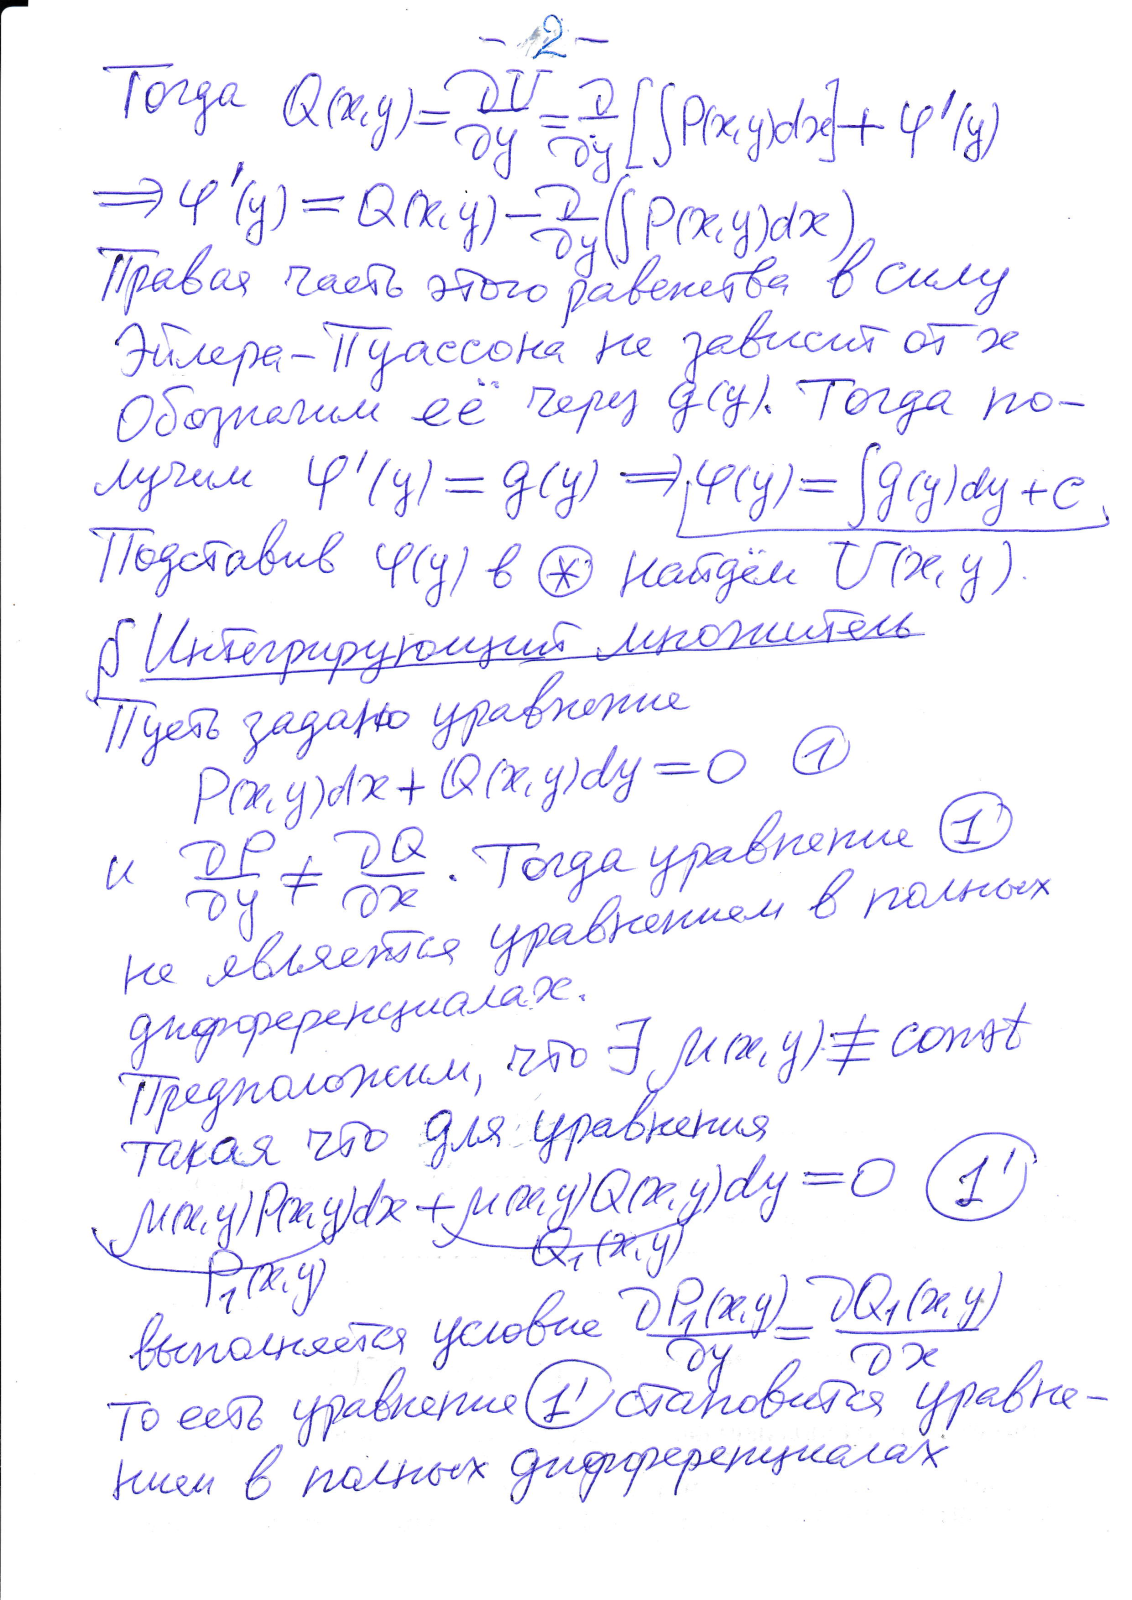 - 2 -
Тогда Q(x,y) = ∂U/∂y = ∂/∂y [∫P(x,y)dx] + φ'(y)
⇒ φ'(y) = Q(x,y) - ∂/∂y (∫P(x,y)dx)
Правая часть этого равенства в силу
Эйлера-Пуассона не зависит от x
Обозначим её через g(y). Тогда по-
лучим φ'(y) = g(y) ⇒ φ(y) = ∫g(y)dy + C
Подставив φ(y) в (*) найдём U(x,y).
§ Интегрирующий множитель
Пусть задано уравнение
P(x,y)dx + Q(x,y)dy = 0 (1)
и ∂P/∂y ≠ ∂Q/∂x. Тогда уравнение (1)
не является уравнением в полных
дифференциалах.
Предположим, что ∃ μ(x,y) ≢ const
такая что для уравнения
μ(x,y)P(x,y)dx + μ(x,y)Q(x,y)dy = 0 (1')
P₁(x,y) Q₁(x,y)
выполняется условие ∂P₁(x,y)/∂y = ∂Q₁(x,y)/∂x
то есть уравнение (1') становится уравне-
нием в полных дифференциалах